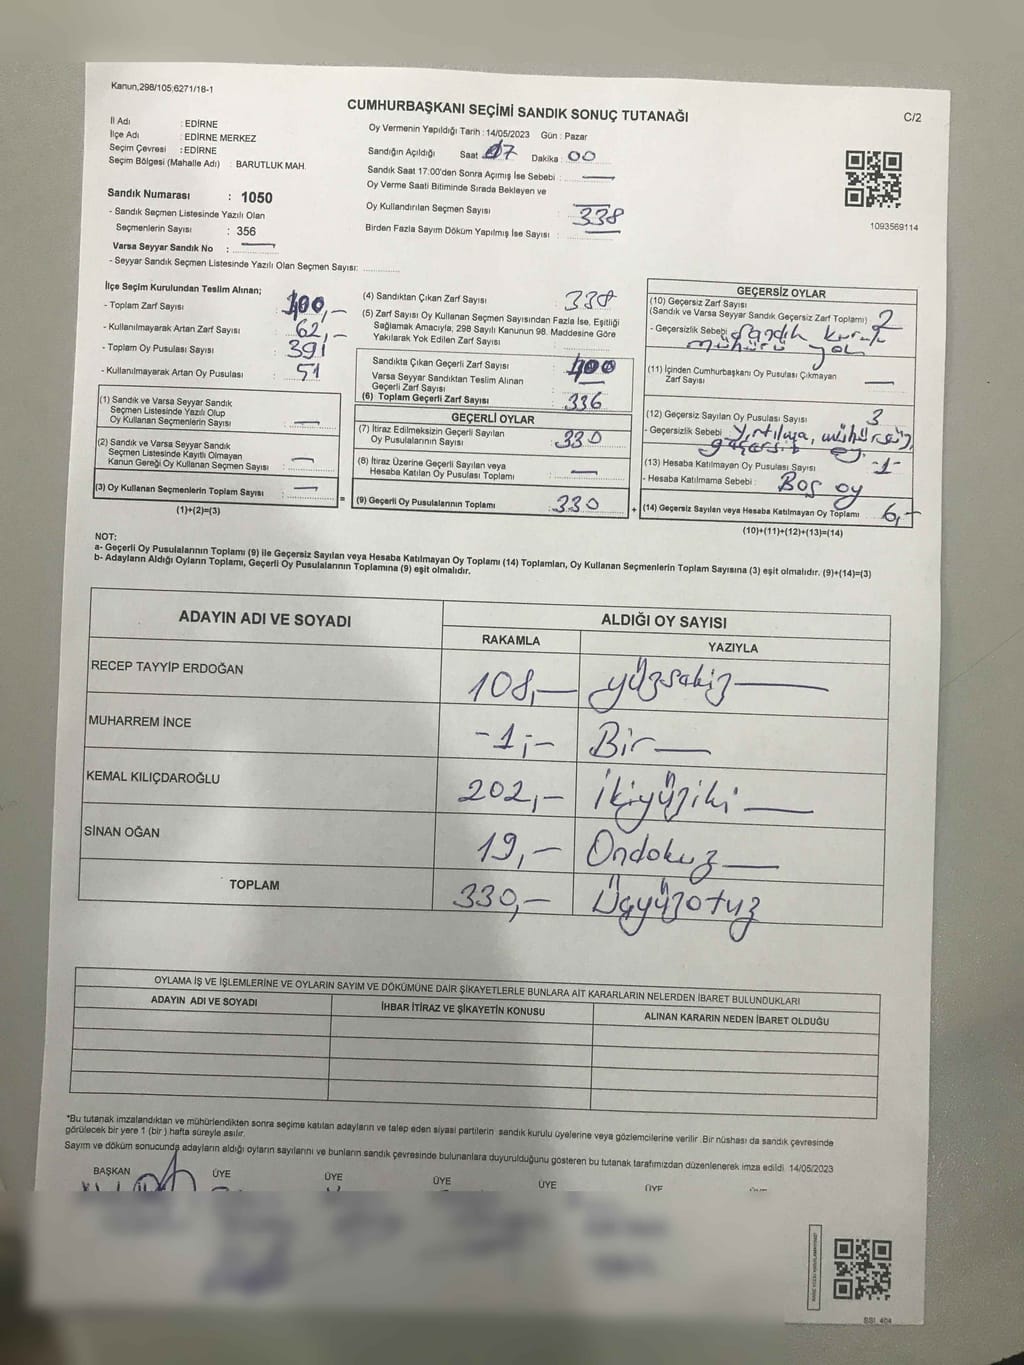 Kanun,298/105;6271/18-1
CUMHURBAŞKANI SEÇİMİ SANDIK SONUÇ TUTANAĞI
C/2
İl Adı : EDİRNE
İlçe Adı : EDİRNE MERKEZ
Seçim Çevresi : EDİRNE
Seçim Bölgesi (Mahalle Adı) : BARUTLUK MAH.
Sandık Numarası : 1050
- Sandık Seçmen Listesinde Yazılı Olan
Seçmenlerin Sayısı : 356
Varsa Seyyar Sandık No :
- Seyyar Sandık Seçmen Listesinde Yazılı Olan Seçmen Sayısı:
Oy Vermenin Yapıldığı Tarih : 14/05/2023 Gün : Pazar
Sandığın Açıldığı Saat 17 Dakika : 00
Sandık Saat 17:00'den Sonra Açımış İse Sebebi :
Oy Verme Saati Bitiminde Sırada Bekleyen ve
Oy Kullandırılan Seçmen Sayısı : 338
Birden Fazla Sayım Döküm Yapılmış İse Sayısı :
1093569114
İlçe Seçim Kurulundan Teslim Alınan;
- Toplam Zarf Sayısı : 400,-
- Kullanılmayarak Artan Zarf Sayısı : 62,-
- Toplam Oy Pusulası Sayısı : 391
- Kullanılmayarak Artan Oy Pusulası : 51
(1) Sandık ve Varsa Seyyar Sandık
Seçmen Listesinde Yazılı Olup
Oy Kullanan Seçmenlerin Sayısı : —
(2) Sandık ve Varsa Seyyar Sandık
Seçmen Listesinde Kayıtlı Olmayan
Kanun Gereği Oy Kullanan Seçmen Sayısı : —
(3) Oy Kullanan Seçmenlerin Toplam Sayısı : —
(1)+(2)=(3)
(4) Sandıktan Çıkan Zarf Sayısı : 338
(5) Zarf Sayısı Oy Kullanan Seçmen Sayısından Fazla İse, Eşitliği
Sağlamak Amacıyla, 298 Sayılı Kanunun 98. Maddesine Göre
Yakılarak Yok Edilen Zarf Sayısı :
Sandıkta Çıkan Geçerli Zarf Sayısı : 400
Varsa Seyyar Sandıktan Teslim Alınan
Geçerli Zarf Sayısı : —
(6) Toplam Geçerli Zarf Sayısı : 336
=
GEÇERLİ OYLAR
(7) İtiraz Edilmeksizin Geçerli Sayılan
Oy Pusulalarının Sayısı : 330
(8) İtiraz Üzerine Geçerli Sayılan veya
Hesaba Katılan Oy Pusulası Toplamı : —
(9) Geçerli Oy Pusulalarının Toplamı : 330
+
GEÇERSİZ OYLAR
(10) Geçersiz Zarf Sayısı
(Sandık ve Varsa Seyyar Sandık Geçersiz Zarf Toplamı) : 2
- Geçersizlik Sebebi : Sandık kurulu
mühürü yok
(11) İçinden Cumhurbaşkanı Oy Pusulası Çıkmayan
Zarf Sayısı —
(12) Geçersiz Sayılan Oy Pusulası Sayısı : 3
- Geçersizlik Sebebi : Yırtılma, mühürsüz,
geçersiz oy.
(13) Hesaba Katılmayan Oy Pusulası Sayısı : -1-
- Hesaba Katılmama Sebebi : Boş oy
(14) Geçersiz Sayılan veya Hesaba Katılmayan Oy Toplamı : 6,-
(10)+(11)+(12)+(13)=(14)
NOT:
a- Geçerli Oy Pusulalarının Toplamı (9) ile Geçersiz Sayılan veya Hesaba Katılmayan Oy Toplamı (14) Toplamları, Oy Kullanan Seçmenlerin Toplam Sayısına (3) eşit olmalıdır. (9)+(14)=(3)
b- Adayların Aldığı Oyların Toplamı, Geçerli Oy Pusulalarının Toplamına (9) eşit olmalıdır.
ADAYIN ADI VE SOYADI
ALDIĞI OY SAYISI
RAKAMLA YAZIYLA
RECEP TAYYİP ERDOĞAN 108,— yüzsekiz—
MUHARREM İNCE -1,- Bir—
KEMAL KILIÇDAROĞLU 202,- İkiyüziki—
SİNAN OĞAN 19,- Ondokuz—
TOPLAM 330,- Üçyüzotuz
OYLAMA İŞ VE İŞLEMLERİNE VE OYLARIN SAYIM VE DÖKÜMÜNE DAİR ŞİKAYETLERLE BUNLARA AİT KARARLARIN NELERDEN İBARET BULUNDUKLARI
ADAYIN ADI VE SOYADI
İHBAR İTİRAZ VE ŞİKAYETİN KONUSU
ALINAN KARARIN NEDEN İBARET OLDUĞU
*Bu tutanak imzalandıktan ve mühürlendikten sonra seçime katılan adayların ve talep eden siyasi partilerin sandık kurulu üyelerine veya gözlemcilerine verilir .Bir nüshası da sandık çevresinde
görülecek bir yere 1 (bir ) hafta süreyle asılır.
Sayım ve döküm sonucunda adayların aldığı oyların sayılarını ve bunların sandık çevresinde bulunanlara duyurulduğunu gösteren bu tutanak tarafımızdan düzenlenerek imza edildi 14/05/2023
BAŞKAN ÜYE ÜYE ÜYE ÜYE ÜYE
SSI_404